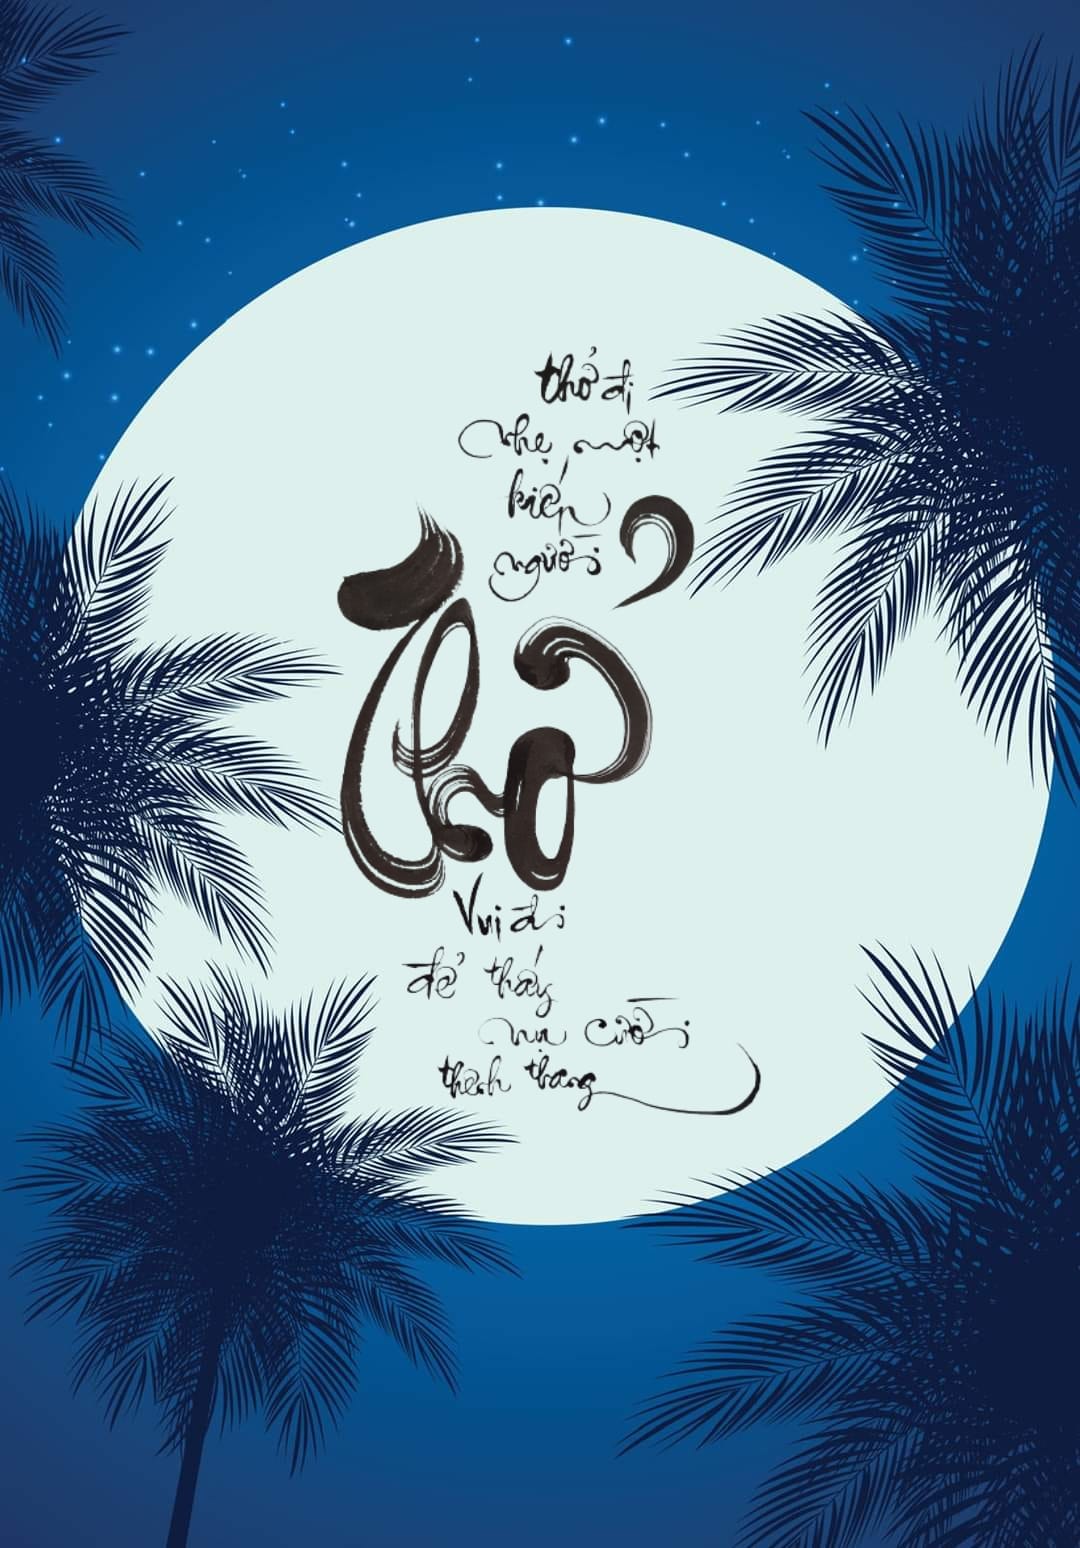 thở đi
nhẹ một
kiếp
người
Thở
Vui đi
để thấy
nụ cười
thênh thang